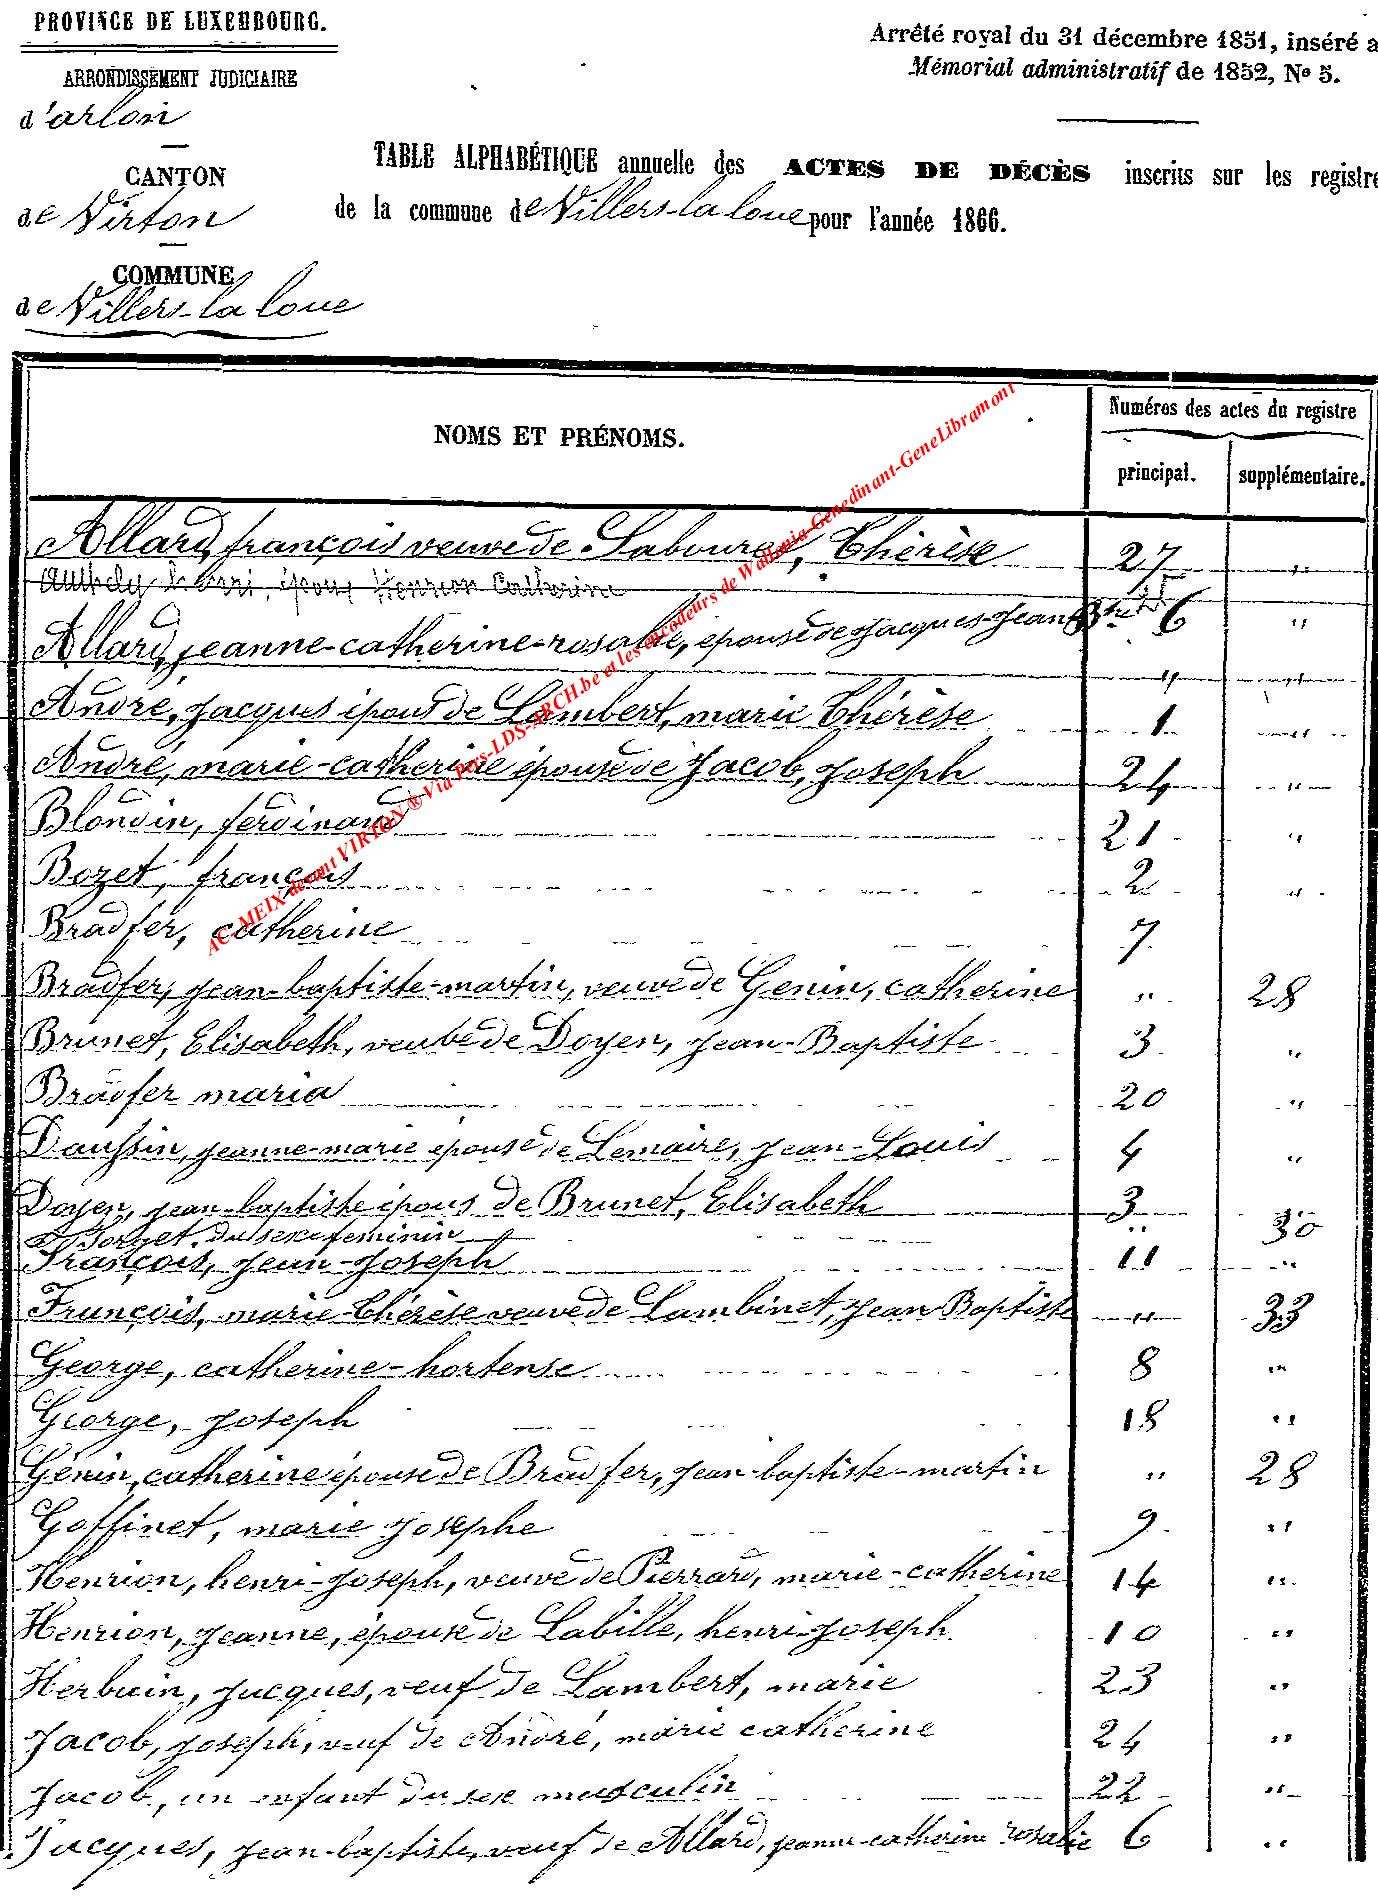 PROVINCE DE LUXEMBOURG.
ARRONDISSEMENT JUDICIAIRE
d'arlon
CANTON
de Virton
COMMUNE
de Villers-la loue
Arrêté royal du 31 décembre 1851, inséré a
Mémorial administratif de 1852, No 5.
TABLE ALPHABÉTIQUE annuelle des ACTES DE DÉCÈS inscrits sur les registre
de la commune de Villers-la loue pour l'année 1866.
NOMS ET PRÉNOMS.
Numéros des actes du registre
principal. supplémentaire.
Allard, françois veuve de Labouret, Thérèse 27 "
Henri, époux Henrion Catherine
Allard, jeanne-catherine-rosalie, épouse de Jacques-Jean-Bte 6 "
" "
André, Jacques époux de Lambert, marie Thérèse 1 "
André, marie-catherine épouse de Jacob, Joseph 24 "
Blondin, ferdinand 21 "
Bozet, françois 2 "
Bradfer, catherine 7
Bradfer, jean-baptiste-martin, veuve de Genin, catherine " 28
Brunet, Elisabeth, veube de Doyen, Jean-Baptiste 3 "
Bradfer maria 20 "
Daussin, jeanne-marie épouse de Lemaire, Jean-Louis 4 "
Doyen, jean-baptiste époux de Brunet, Elisabeth 3 "
du sexe feminin " 30
François, Jean-Joseph 11 "
François, marie-Thérèse veuve de Lambinet, Jean Baptiste " 33
George, catherine-hortense 8 "
George, Joseph 18 "
Génin, catherine épouse de Bradfer, Jean-baptiste-martin " 28
Goffinet, marie Josephe 9 "
Henrion, henri-Joseph, veuve de Pierrard, marie-catherine 14 "
Henrion, Jeanne, épouse de Labille, henri-Joseph 10 "
Herbuin, Jacques, veuf de Lambert, marie 23 "
Jacob, Joseph, veuf de André, marie catherine 24 "
Jacob, un enfant du sexe masculin 22 "
Jacques, Jean-baptiste, veuf de Allard, jeanne-catherine rosalie 6 "
AC-MEIX devant VIRTON ® Via Pers-LDS-ARCH.be et les encodeurs de Wallonia-Genedinant-GeneLibramont